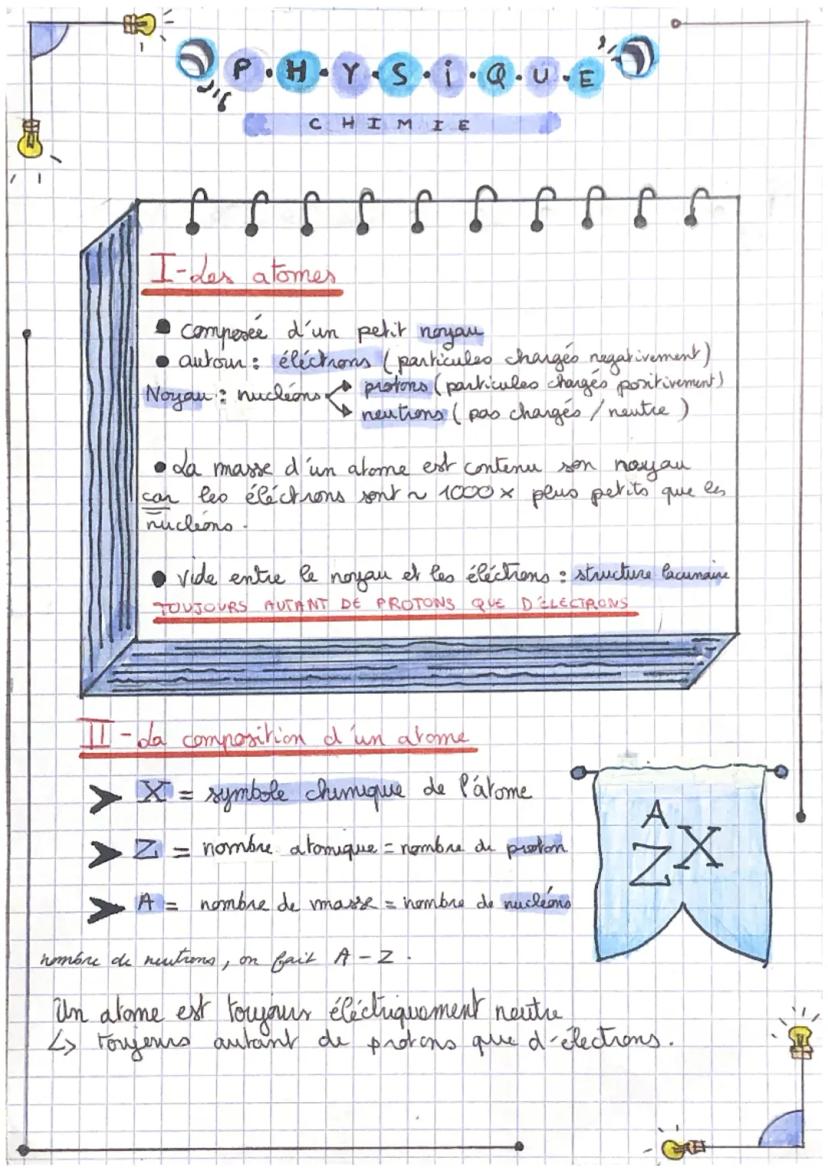 P.H.Y.S.i.Q.U.E
CHIMIE
I-Les atomes
• composée d'un petit noyau
• autour : éléctrons (particules chargés negativement)
Noyau : nucléons protons (particules chargés positivement)
neutrons (pas chargés / neutre)
• La masse d'un atome est contenu son noyau
car les éléctrons sont ~ 1000 x plus petits que les
nucléons.
• vide entre le noyau et les éléctrons : structure lacunaire
TOUJOURS AUTANT DE PROTONS QUE D'ÉLECTRONS
II-La composition d'un atome
➤ X = symbole chimique de l'átome
➤ Z = nombre atomique = nombre de proton
➤ A = nombre de masse = nombre de nucléons
A
Z X
nombre de neutrons, on fait A-Z.
Un atome est toujours éléctriquement neutre
↳ toujours autant de protons que d'électrons.